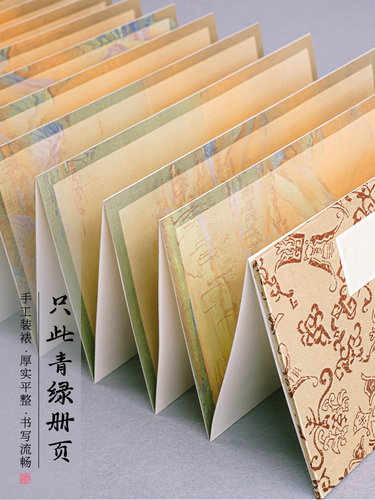 只此青绿册页
手工装裱·厚实平整·书写流畅